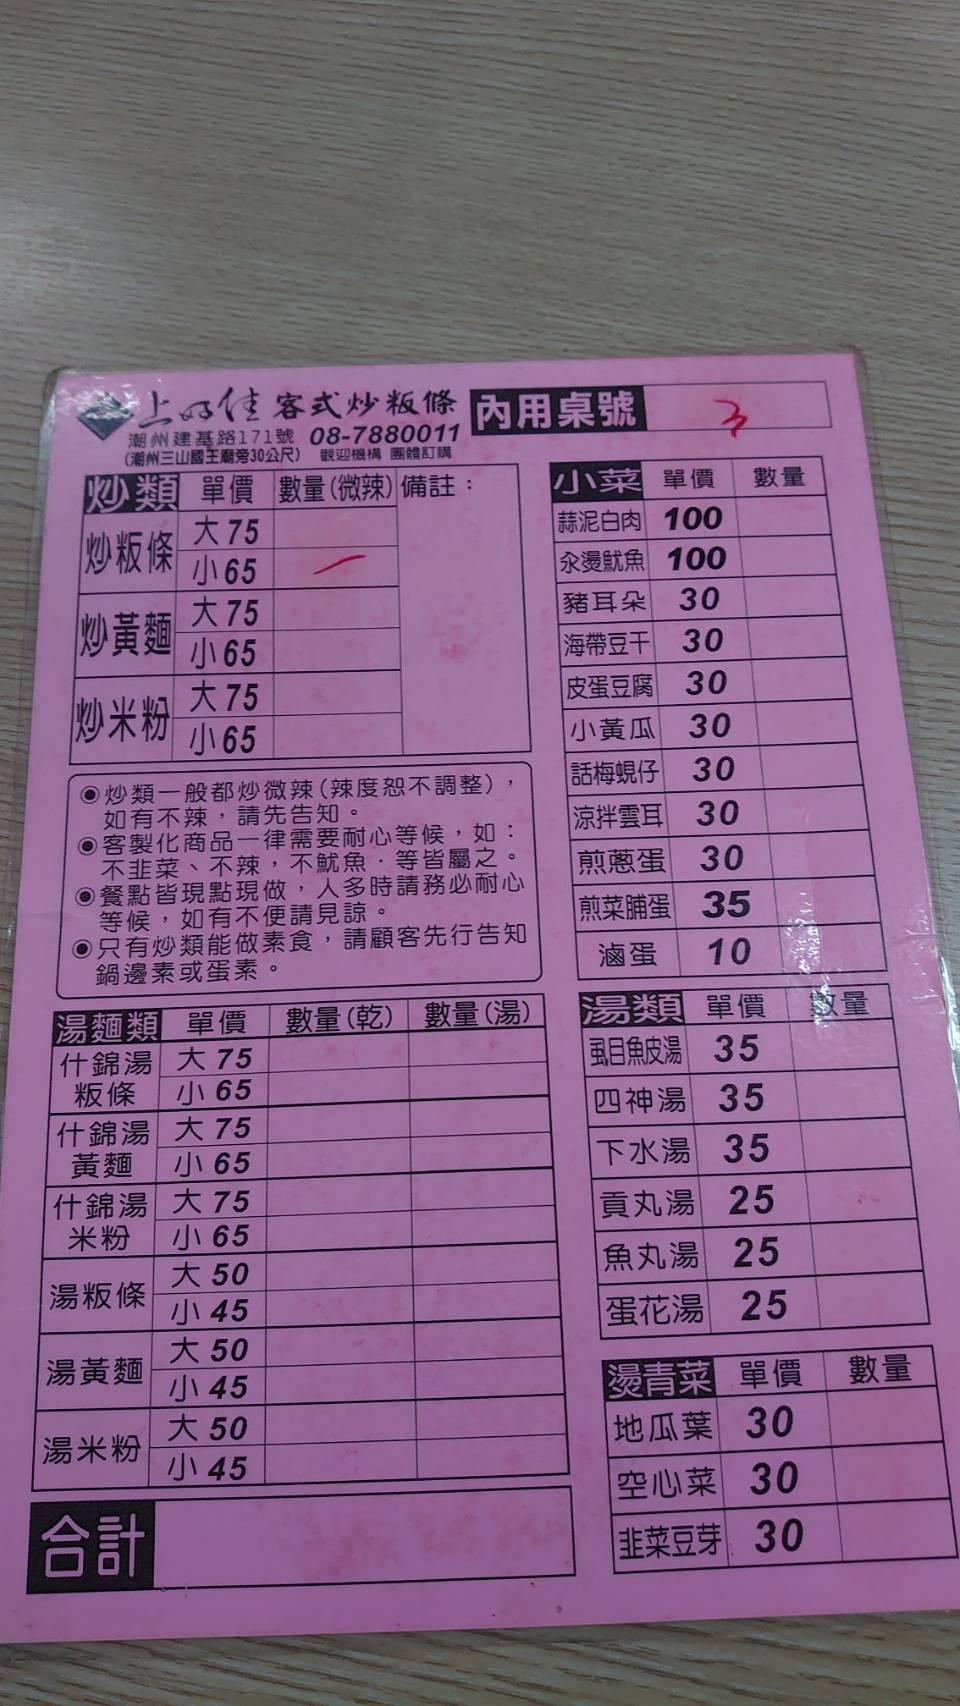 上好佳 客式炒粄條 內用桌號 3
潮州建基路171號 08-7880011
(潮州三山國王廟旁30公尺) 歡迎機構 團體訂購
炒類 單價 數量(微辣) 備註：
炒粄條 大 75
小 65 一
炒黃麵 大 75
小 65
炒米粉 大 75
小 65
◉炒類一般都炒微辣(辣度恕不調整)，
如有不辣，請先告知。
◉客製化商品一律需要耐心等候，如：
不韭菜、不辣，不魷魚．等皆屬之。
◉餐點皆現點現做，人多時請務必耐心
等候，如有不便請見諒。
◉只有炒類能做素食，請顧客先行告知
鍋邊素或蛋素。
湯麵類 單價 數量(乾) 數量(湯)
什錦湯粄條 大 75
小 65
什錦湯黃麵 大 75
小 65
什錦湯米粉 大 75
小 65
湯粄條 大 50
小 45
湯黃麵 大 50
小 45
湯米粉 大 50
小 45
合計
小菜 單價 數量
蒜泥白肉 100
汆燙魷魚 100
豬耳朵 30
海帶豆干 30
皮蛋豆腐 30
小黃瓜 30
話梅蜆仔 30
涼拌雲耳 30
煎蔥蛋 30
煎菜脯蛋 35
滷蛋 10
湯類 單價 數量
虱目魚皮湯 35
四神湯 35
下水湯 35
貢丸湯 25
魚丸湯 25
蛋花湯 25
燙青菜 單價 數量
地瓜葉 30
空心菜 30
韭菜豆芽 30